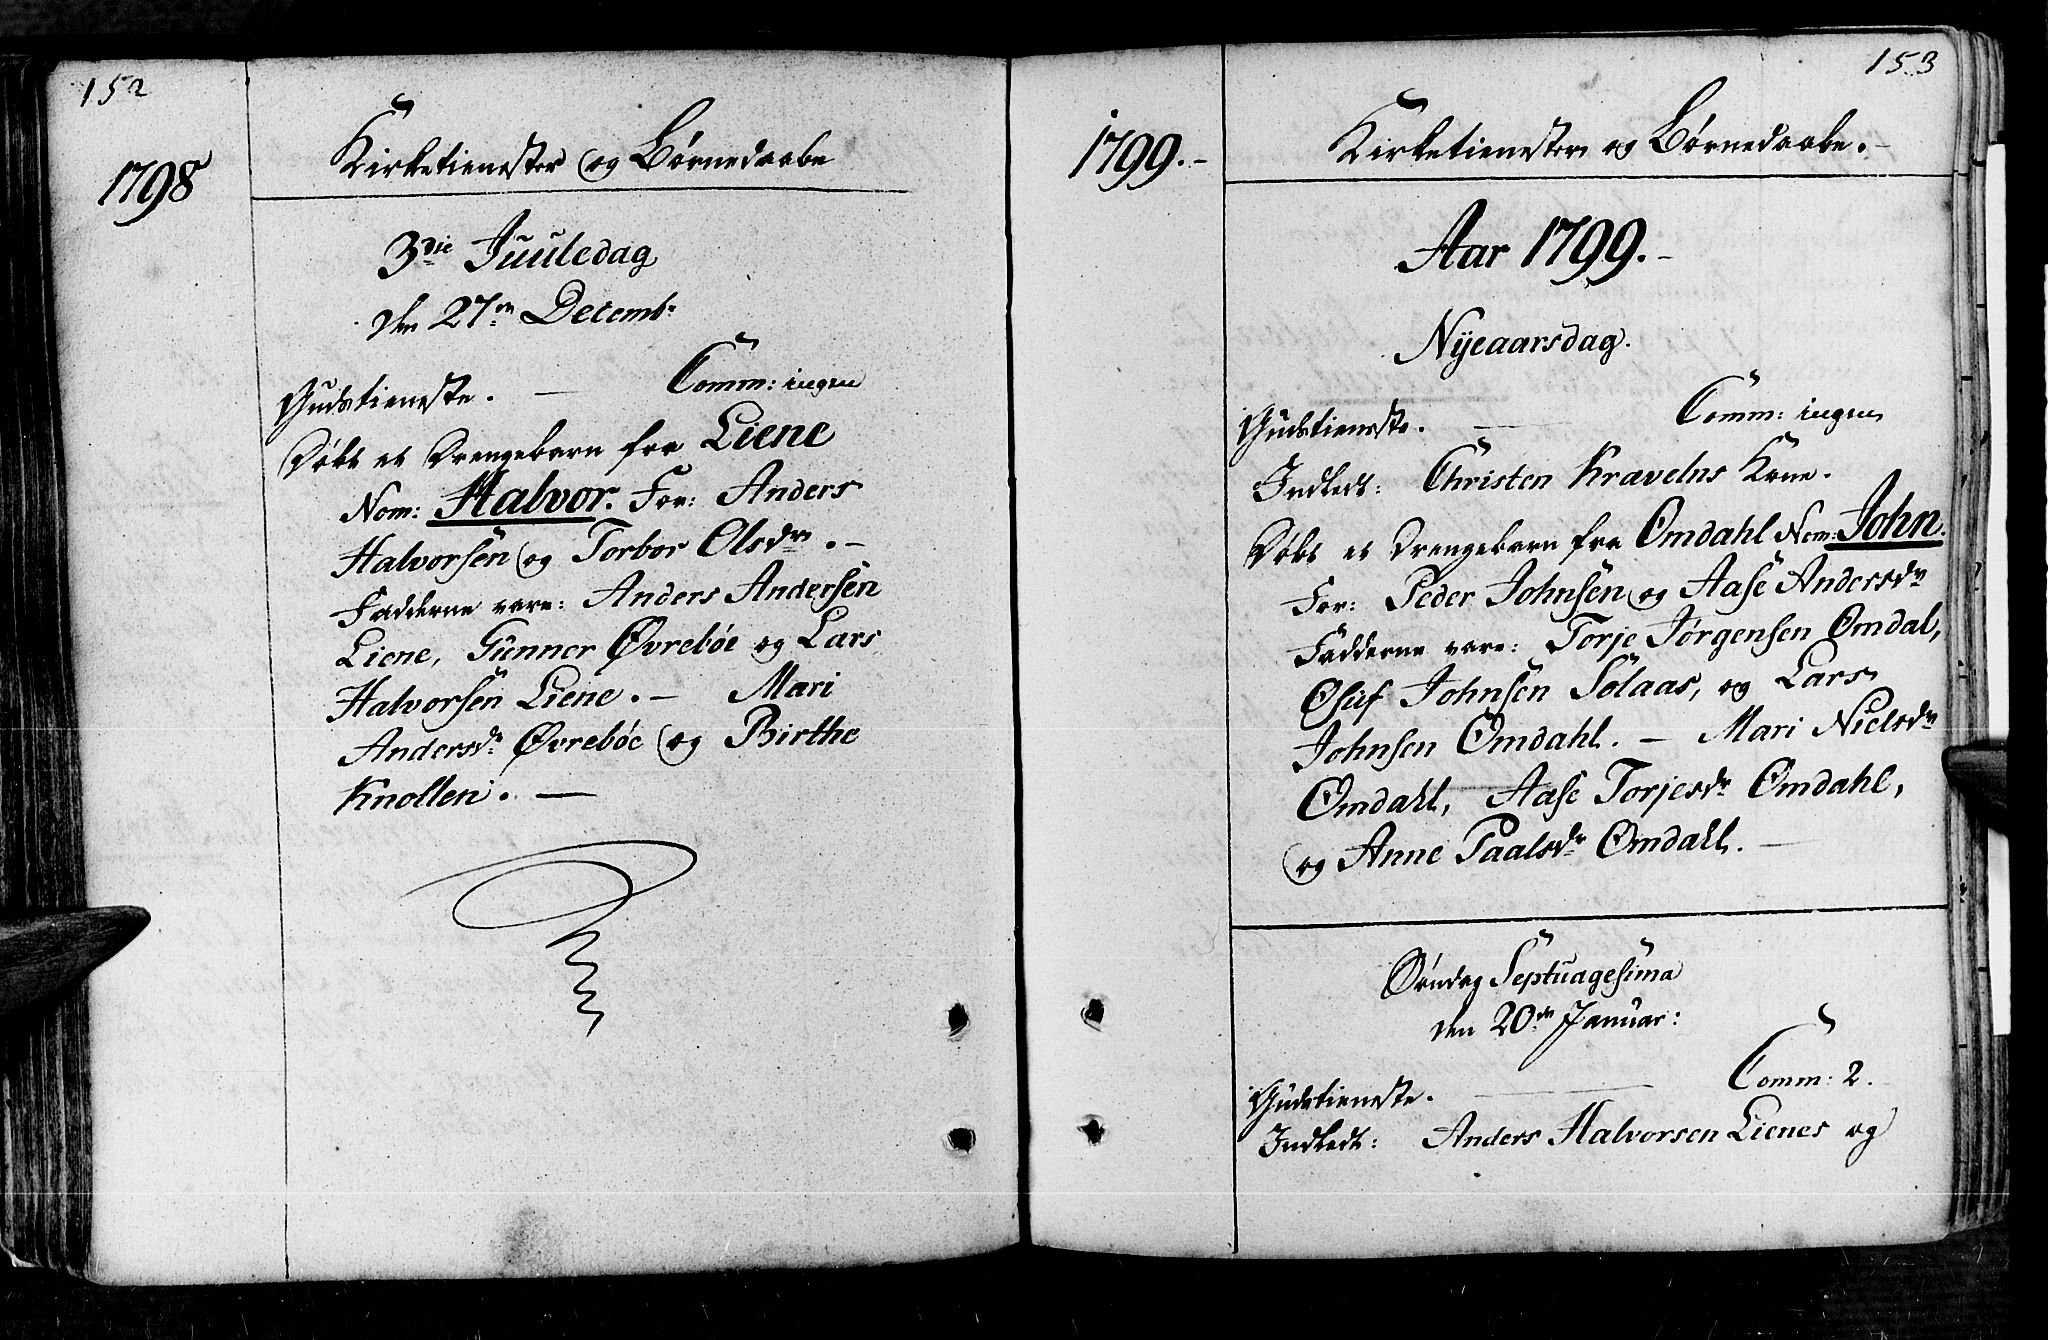 152
1798
Kirketienester og Børnedaabe
3die Juuledag
den 27de Decembr
Gudstieneste. — Comm: ingen
Døbt et Drengebarn fra Liene
Nom: Halvor. For: Anders
Halvorsen og Torbor Olsdr. —
Fadderne vare: Anders Andersen
Liene, Gunner Øvrebøe og Lars
Halvorsen Liene. — Mari
Andersdr Øvrebøe og Birthe
Knollen. —
153
1799. –
Kirketienester og Børnedaabe. –
Aar 1799. –
Nyeaarsdag.
Gudstieneste. — Comm: ingen
Indledt: Christen Kravelns Kone.
Døbt et Drengebarn fra Omdahl Nom: John.
For: Peder Johnsen og Aase Andersdr
Fadderne vare: Torje Jørgensen Omdal,
Osuf Johnsen Solaas, og Lars
Johnsen Omdahl. — Mari Nielsdr
Omdahl, Aase Torjesdr Omdahl,
og Anne Paalsdr Omdahl. —
Søndag Septuagesima
den 20de Januar:
Gudstieneste. — Comm: 2.
Indledt: Anders Halvorsen Lienes og